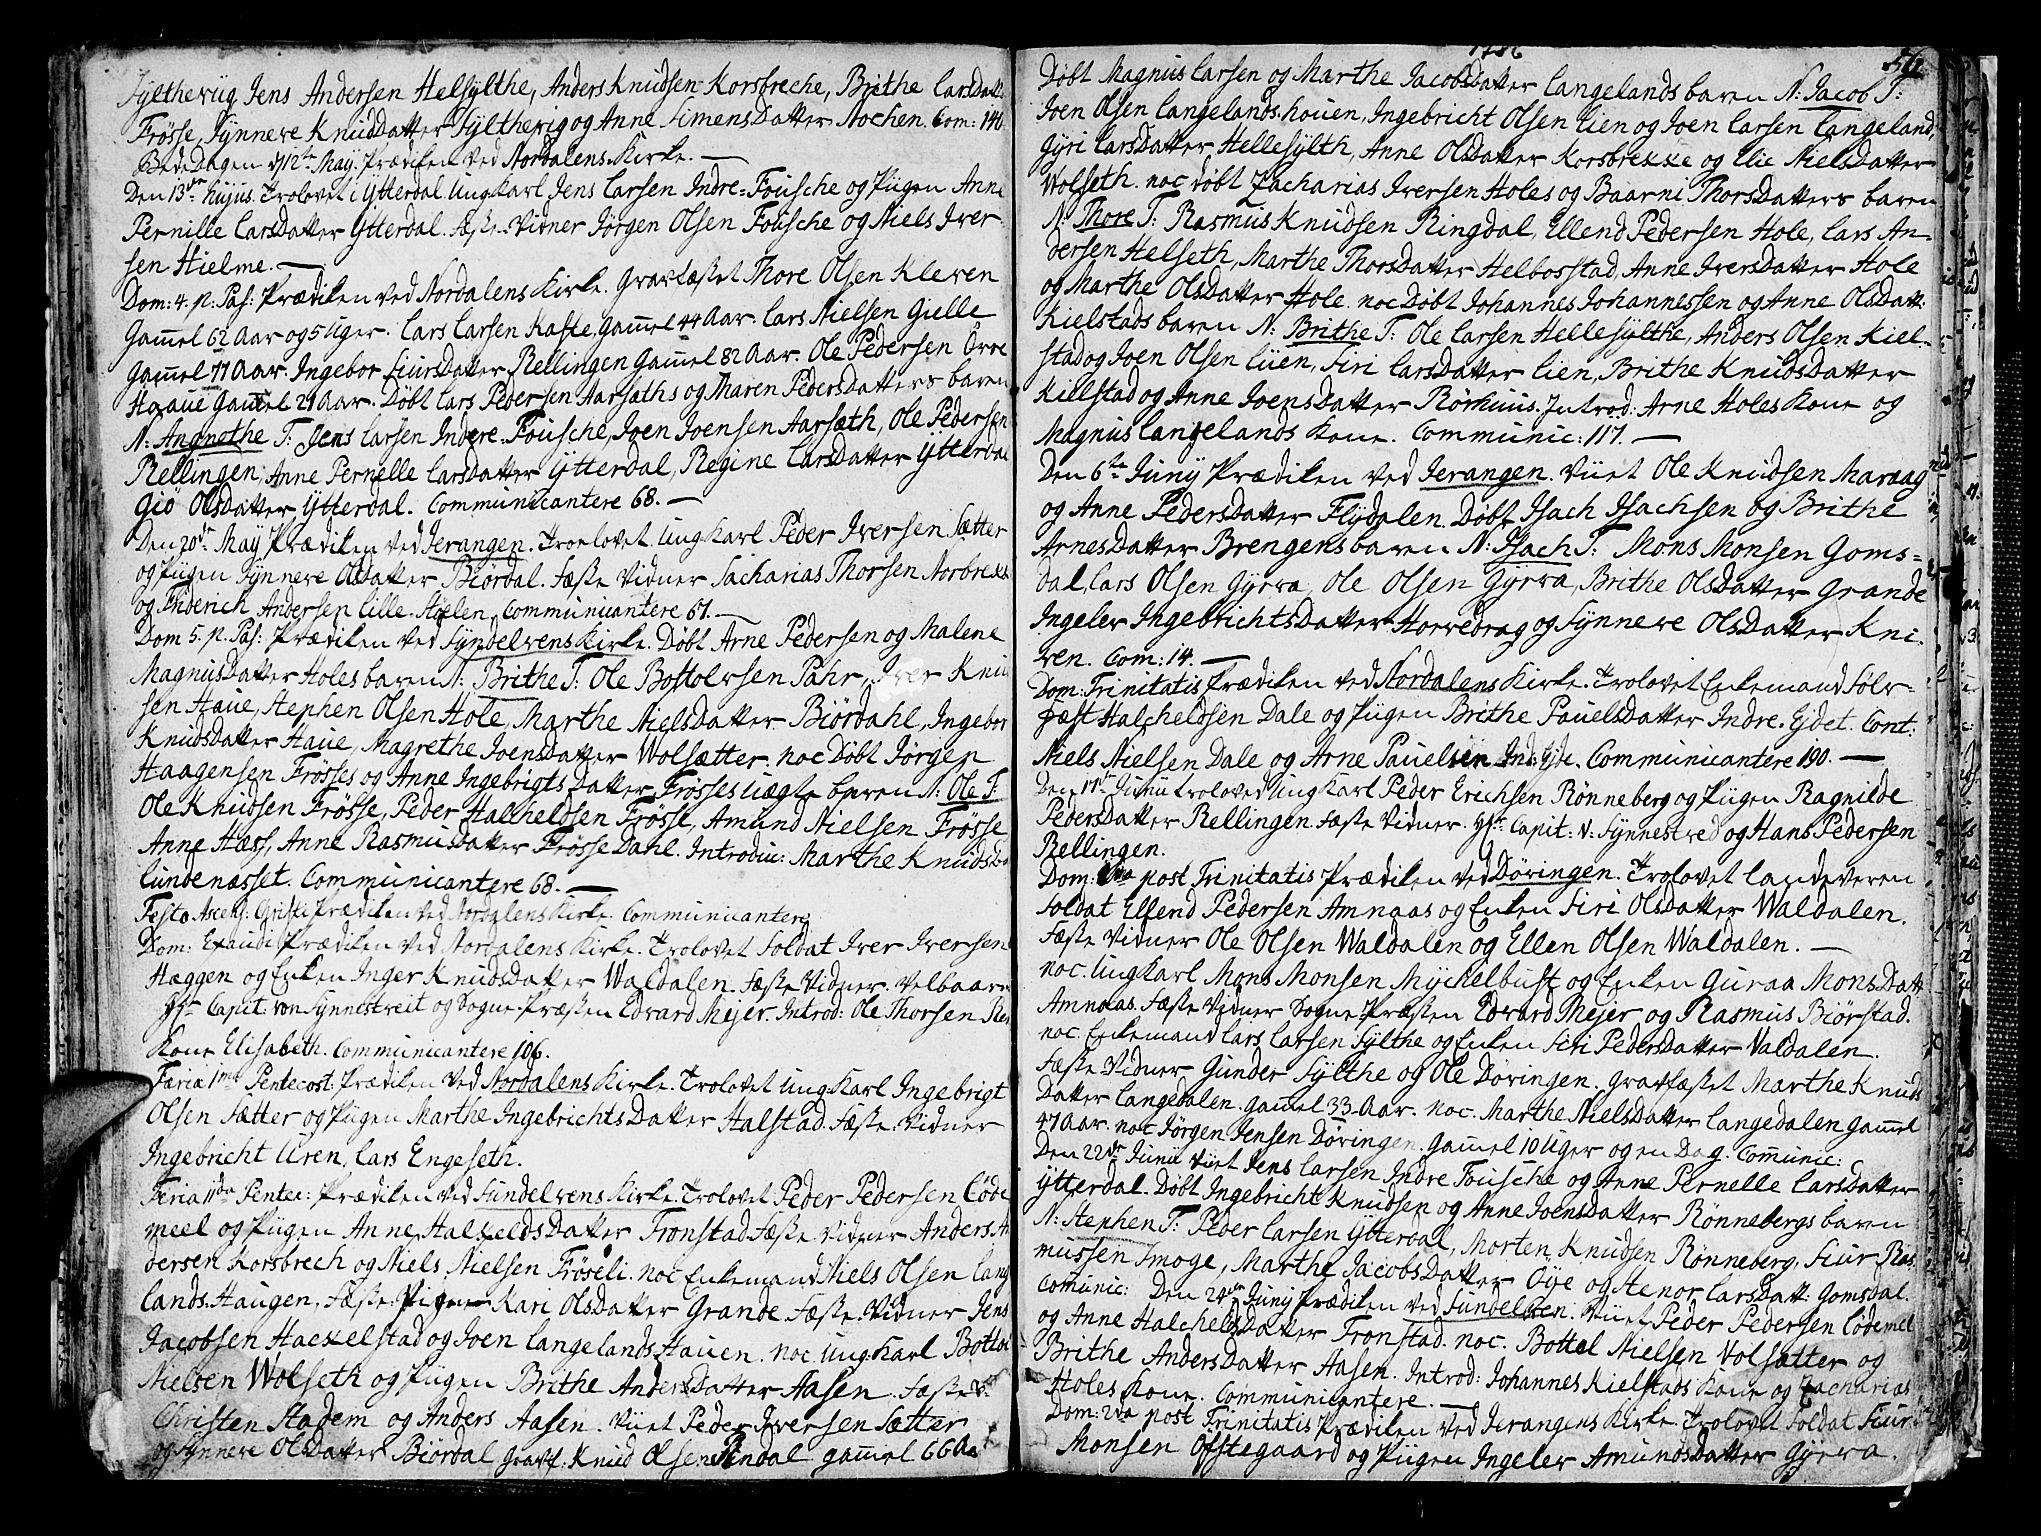 Syltherüg Jens Andersen Helsylthe, Anders Knudsen Korsbreche, Brithe Larsdatt
Frösse, Synnere Knudsdatter Syltherig og Anne Simensdatter Aochen. Com: 140
BedeDagen d 12te May. Prædiken ved Nordalens Kirke. —
Den 13de hujus. Trolovet i Ytterdal UngKarl Jens Larsen Indre-Fousche og Pigen Anne
Pernille Larsdatter Ytterdal. Fæste Vidner Jörgen Olsen Fousche og Niels Iver-
sen Hielme. —
Dom: 4. p: Pas: Prædiken ved Nordalens Kirke. Gravfæstet Thore Olsen Kleven
Gamel 62 Aar og 5 Uger. Lars Larsen Kaste, Gamel 44 Aar. Lars Nielsen Gielle
Gamel 77 Aar. Ingebor Siursdatter Rellingen Gamel 82 Aar. Ole Pedersen Örre
Haaue Gamel 21 Aar. Döbt Lars Pedersen Aarsæths og Maren Pedersdatters baren
N: Angnethe T: Jens Larsen Indre Fousche, Joen Joensen Aarsæth, Ole Pedersen
Rellingen, Anne Pernelle Larsdatter Ytterdal, Regine Larsdatter Ytterdal
Giö Olsdatter Ytterdal. Communicantere 68. —
Den 20de May Prædiken ved Jerangen. Troelovet UngKarl Peder Iversen Sætter
og Pigen Synnere Olsdatter Biördal. Fæste Vidner Sacharias Thorsen Norbrekke
og Friderich Andersen Lille-Stölen. Communicantere 61. —
Dom 5. p. Pas: Prædiken ved Syndelvens Kirke. Döbt Arne Pedersen og Malene
Magnusdatter Holes baren N: Brithe T: Ole Bottolvsen Pahr, Iver Knud
sen Haue, Stephen Olsen Hole, Marthe Nielsdatter Biördahl, Ingebor
Knudsdatter Haue, Magrethe Joensdatter Wolsætter. noc Döbt Jörgen
Haagensen Frösses og Anne Ingebrigts datter Frösses uægte baren N: Ole T:
Ole Knudsen Frösse, Peder Halcheldsen Frösse, Amund Nielsen Frösse
Anne Hæss, Anne Rasmusdatter FrösseDahl. Introdu: Marthe Knudsda
Lundenæsset. Communicantere 68. —
Festo Ascens: Christi Prædiken ved Nordalens Kirke. Communicantere
Dom: Exaudi Prædiken ved Nordalens Kirke. Trolovet Soldat Iver Iversen
Hæggen og Enken Inger Knudsdatter Waldalen. Fæste Vidner. Velbaarn
Hr Capit: von Synnestreit og Sogne Præsten Edvard Mejer. Introd: Ole Thorsen
Kone Elisabeth. Communicantere 106.
Færia 1ma Pentecost: Prædiken ved Nordalens Kirke. Trolovet UngKarl Ingebrigt
Olsen Sætter og Pigen Marthe Ingebrichts Datter Halstad. Fæste Vidner
Ingebricht Uren, Lars Engeseth.
Feria 11da Pentec: Prædiken ved Sündelvens Kirke. Trolovet Peder Pedersen Löde
meel og Pigen Anne Halkelds Datter Fronstad. Fæste Vidner Anders A
dersen Korsbrech og Niels Nielsen Fröseli. noc Enkemand Niels Olsen Lang
lands Haugen, Fæste Pigen Kari Olsdatter Grande. Fæste Vidner Jens
Jacobsen Haexelstad og Joen Langelands Hauen. noc. UngKarl Bottol
Nielsen Wolseth og Pigen Brithe Andersdatter Aasen. Fæste V:
Christen Stadem og Anders Aasen. Viiet Peder Iversen Sætter
og Synnere Olsdatter Biördal. Gravf: Knud Olsen Rindal gamel 66 Aa
1786
Döbt Magnus Larsen og Marthe Jacobsdatter Langelands baren N: Jacob T:
Joen Olsen Langelands houen, Ingebricht Olsen Lien og Joen Larsen Langeland,
Gyri Larsdatter Hellesylth, Anne Olsdatter Korsbrekke og Elie Nielsdatter
Wolseth. noc döbt Zacharias Iversen Holes og Baarni Thorsdatters baren
N: Thore T: Rasmus Knudsen Ringdal, Ellend Pedersen Hole, Lars An-
dersen Helseth, Marthe Thorsdatter Helbosstad, Anne Iversdatter Hole
og Marthe Olsdatter Hole. noc Döbt Johannes Johannessen og Anne Olsdatt:
Kielstads baren N: Brithe T: Ole Larsen Hellesylthe, Anders Olsen Kiel-
stad og Joen Olsen Lüen, Siri Larsdatter Lien, Brithe Knudsdatter
Kielstad og Anne Joensdatter Rörhuus. Introd: Arne Holes Kone og
Magnus Langelands Kone. Communic: 117. —
Den 6te Juny Prædiken ved Jerangen. Viiet Ole Knudsen Maraag
og Anne Pedersdatter Flydalen. Döbt Isach Isachsen og Brithe
Arnesdatter Brengens baren N: Isach T: Mons Monsen Goms=
dal, Lars Olsen Gyrra, Ole Olsen Gyrra, Brithe Olsdatter Grande
Ingeler Ingebrichtsdatter Horvedrag og Synnere Olsdatter Kni-
ven. Com: 14. —
Dom: Trinitatis Prædiken ved Nordalens Kirke. Trolovet Enkemand Sölv-
fæst Halcheldsen Dale og Pigen Brithe Pouelsdatter Indre-Ejdet. Cont:
Niels Nielsen Dale og Arne Pauelsen Ind: Ejde. Communicantere 190. —
Den 17de Junii trolovet UngKarl Peder Erichsen Rönneberg og Pigen Ragnilde
Pedersdatter Rellingen. Fæste Vidner. Hr Capit: v: Synnestred og Hans Pedersen
Rellingen.
Dom: 1ma post Trinitatis Prædiken ved Döringen. Trolovet Landeveren
Soldat Ellend Pedersen Amnaas og Enken Siri Olsdatter Waldalen.
Fæste Vidner Ole Olsen Waldalen og Ellen Olsen Waldalen. —
noc. UngKarl Mons Monsen Myckelbust og Enken Guraa Monsdatt
Amnaas. Fæste Vidner Sogne Præsten Edvard Mejer og Rasmus Biörstad.
noc. Enkemand Lars Larsen Sylthe og Enken Siri Pedersdatter Valdalen.
Fæste Vidner Gunder Sylthe og Ole Döringen. Gravfæstet Marthe Knuds
Datter Langedalen. Gamel 33 Aar. noc. Marthe Nielsdatter Langedalen Gamel
47 Aar. noc Jörgen Jensen Döringen. Gamel 10 Uger og en Dag. Comunic:
Den 22de Junii Viiet Jens Larsen Indre Fousche og Anne Pernelle Larsdatter
Ytterdal. Döbt Ingebricht Knudsen og Anne Joensdatter Rönnebergs baren
N: Stephen T: Peder Larsen Ytterdal, Morten Knudsen Rönneberg, Siur Ras-
mussen Smoge, Marthe Jacobsdatter Öye og Henor Larsdatt: Gomsdal.
Comunic: Den 24de Juny Prædiken ved Sundelven. Viiet Peder Pedersen Lödemel
og Anne Halchelds Datter Fronstad. noc. Bottel Nielsen Volsætter og
Brithe Andersdatter Aasen. Introd: Johannes Kielstads Kone og Zacharias
Holes Kone. Communicantere. —
Dom: 2da post Trinitatis Prædiken ved Jerangens Kirke. Trolovet Soldat Siur
Monsen Offstegaard og Pigen Ingeler Amundsdatter Gyrra.